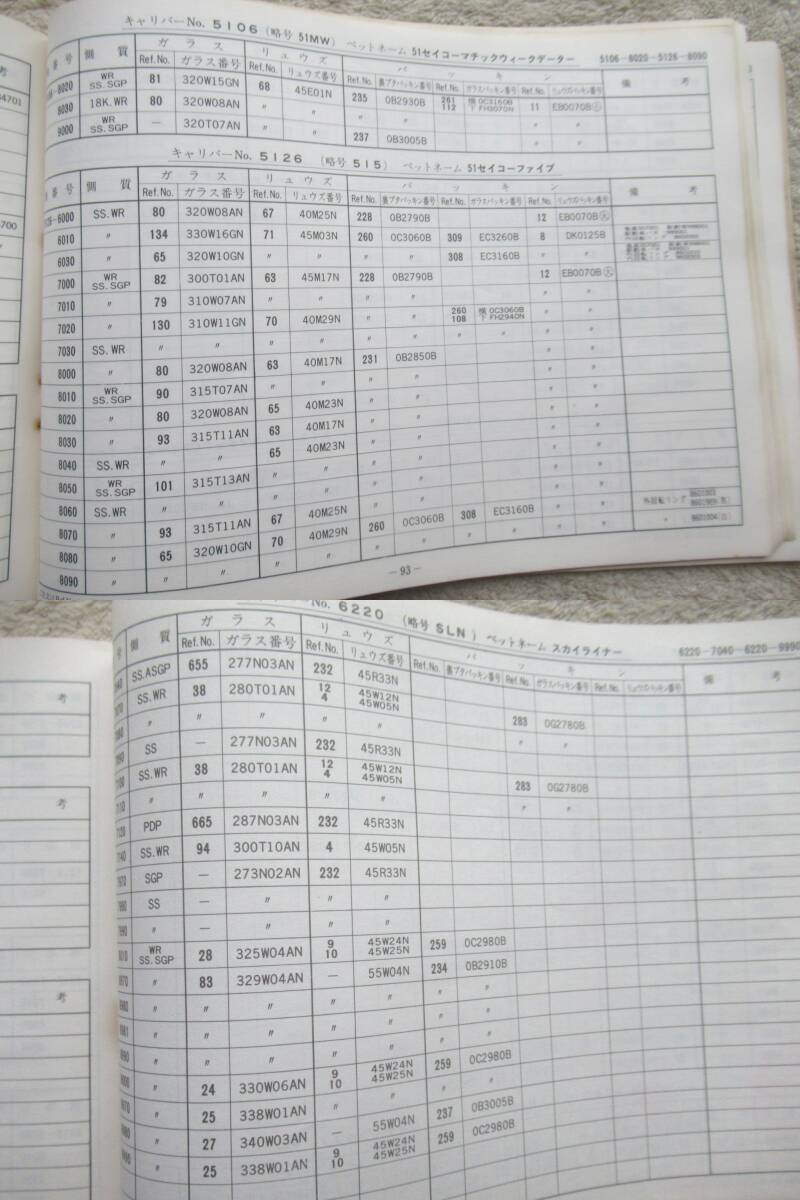 キャリバーNo. 5106 (略号 51MW) ペットネーム 51セイコーマチックウィークデーター 5106-8020-5126-8090
番号 側質 ガラス リュウズ パッキン 備考
Ref.No. ガラス番号 Ref.No. リュウズ番号 Ref.No. 裏ブタパッキン番号 Ref.No. ガラスパッキン番号 Ref.No. リュウズパッキン番号
8020 WR SS.SGP 81 320W15GN 68 45E01N 235 0B2930B 261 112 横 0C3160B 下 FH3070N 11 EB0070B
8030 18K.WR 80 320W08AN 〃 〃 〃 〃
9000 WR SS.SGP — 320T07AN 〃 〃 237 0B3005B 〃 〃
キャリバーNo. 5126 (略号 5I5) ペットネーム 51セイコーファイブ
番号 側質 ガラス リュウズ パッキン 備考
Ref.No. ガラス番号 Ref.No. リュウズ番号 Ref.No. 裏ブタパッキン番号 Ref.No. ガラスパッキン番号 Ref.No. リュウズパッキン番号
6000 SS.WR 80 320W08AN 67 40M25N 228 0B2790B 12 EB0070B 大
6010 〃 134 330W16GN 71 45M03N 260 0C3060B 309 EC3260B 8 DK0125B
6030 〃 65 320W10GN 〃 〃 〃 〃 308 EC3160B 〃 〃
7000 WR SS.SGP 82 300T01AN 63 45M17N 228 0B2790B 12 EB0070B 大
7010 〃 79 310W07AN 〃 〃 〃 〃 〃 〃
7020 〃 130 310W11GN 70 40M29N 〃 〃 260 108 横 0C3060B 下 FH2940N 〃 〃
7030 SS.WR 〃 〃 〃 〃 〃 〃 〃 〃 〃 〃
8000 〃 80 320W08AN 63 40M17N 231 0B2850B 〃 〃
8010 WR SS.SGP 90 315T07AN 〃 〃 〃 〃 〃 〃
8020 〃 80 320W08AN 65 40M23N 〃 〃 〃 〃
8030 〃 93 315T11AN 63 40M17N 〃 〃 〃 〃
8040 SS.WR 〃 〃 65 40M23N 〃 〃 〃 〃
8050 WR SS.SGP 101 315T13AN 〃 〃 〃 〃 〃 〃
8060 SS.WR
8070 〃 93 315T11AN 67 40M25N
8080 〃 65 320W10GN 70 40M29N 260 0C3060B 308 EC3160B 外回転リング
8090 〃 〃 〃 〃 〃 〃 〃 〃 〃
—93—
No. 6220 (略号 SLN) ペットネーム スカイライナー 6220-7040-6220-9990
号 側質 ガラス リュウズ パッキン 備考
Ref.No. ガラス番号 Ref.No. リュウズ番号 Ref.No. 裏ブタパッキン番号 Ref.No. ガラスパッキン番号 Ref.No. リュウズパッキン番号
SS.ASGP 655 277N03AN 232 45R33N
SS.WR 38 280T01AN 12 4 45W12N 45W05N
〃 〃 〃 〃 〃 283 0G2780B
SS — 277N03AN 232 45R33N 〃 〃
7100 SS.WR 38 280T01AN 12 4 45W12N 45W05N 283 0G2780B
7110 〃 〃 〃 〃 〃 〃 〃
7120 PDP 665 287N03AN 232 45R33N
7140 SS.WR 94 300T10AN 4 45W05N
7970 SGP — 273N02AN 232 45R33N
7980 SS — 〃 〃 〃
7990 〃 — 〃 〃 〃
WR SS.SGP 28 325W04AN 9 10 45W24N 45W25N 259 0C2980B
〃 83 329W04AN — 55W04N 234 0B2910B
〃 〃 〃 〃 〃 〃
〃 〃 〃 〃 〃 〃
〃 〃 〃 〃 〃 〃
〃 24 330W06AN 9 10 45W24N 45W25N 259 0C2980B
〃 25 338W01AN 〃 〃 〃 〃
〃 27 340W03AN — 55W04N 237 0B3005B
〃 25 338W01AN 9 10 45W24N 45W25N 259 0C2980B
考
考
考